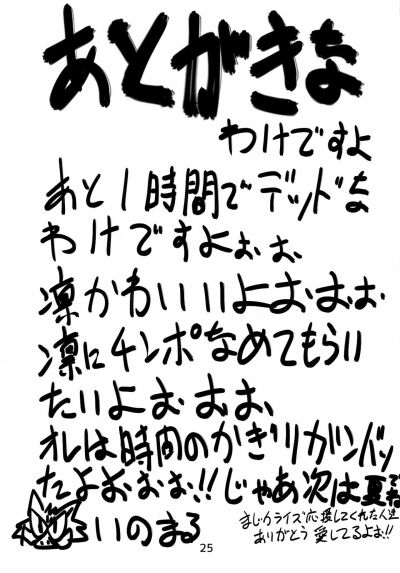 あとがきな
わけですよ
あと1時間でデッドな
わけですよぉぉ、
凛かわいいよおぉぉ
凛にチンポなめてもらい
たいよおぉぉ、
オレは時間のかぎりガンバッ
たよおぉぉぉ!!じゃあ次は夏でね
いのまる
まじカライズ応援してくれた人達
ありがとう愛してるよぉ!!
25